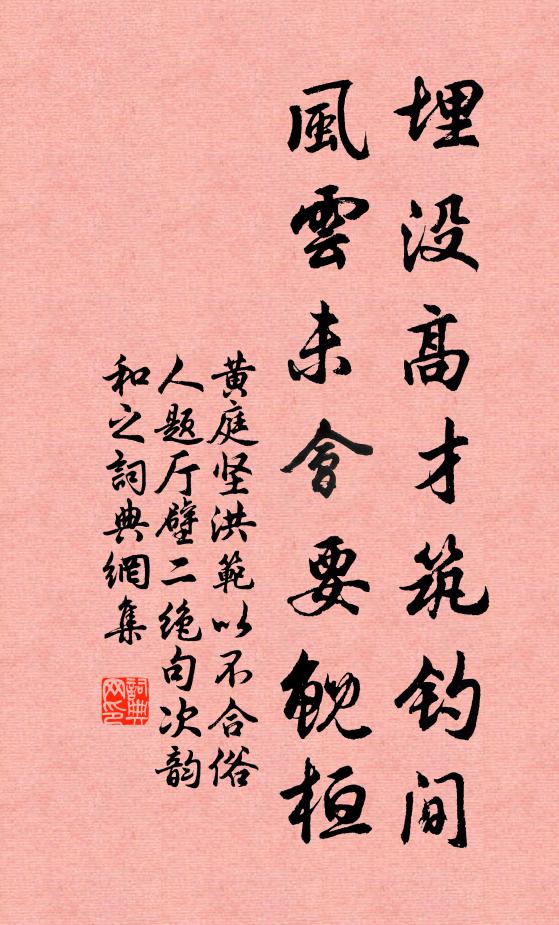 埋没高才筑钓間
風雲未會要鲵桓
黄庭坚洪範以不合俗
人题厅壁二绝句次韵
和之詞典網集
詞典网印